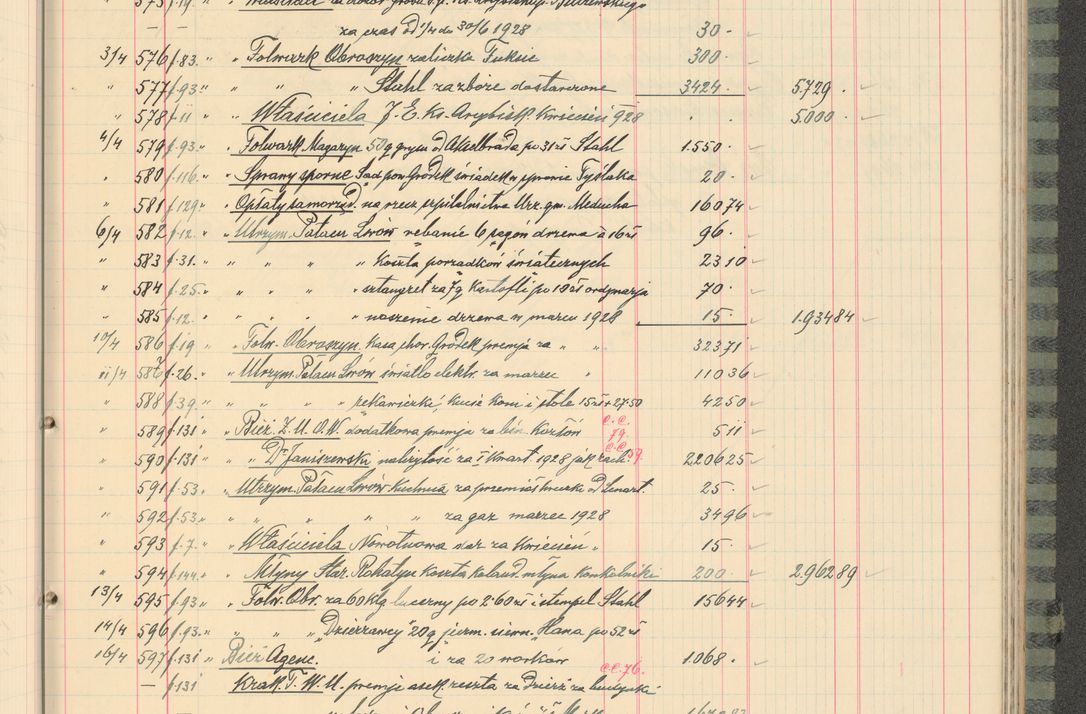 za czas od 1/4 do 30/6 1928 30 ·
3/4 576 f. 83. " " Folwark Obroszyn zaliczka Fuksie 300 ·
" 577 f. 93. " " " Stahl za zboże dostarczone 3424 · 5.729 · ·
" 578 f. 11 " " Właściciela J. E. Ks. Arcybisk. Kwiecień 928 · · 5.000 · ·
4/4 579 f. 93. " " Folwark Magazyn 50 q gryzu od Akselbrada po 31 zł Stahl 1.550 ·
" 580 f. 116. " " Sprawy sporne Sąd pow. Gródek świadek w sprawie Tyślaka 20 ·
" 581 f. 129. " " Opłaty samorząd. na rzecz szpitalnictwa Urz. gm. Meducha 160 74
6/4 582 f. 12. " " Utrzym. Pałacu Lwów rebanie 6 sągów drzewa à 16 zł 96 ·
" 583 f. 31. " " " " " Koszta porządków świątecznych 23 10
" 584 f. 25. " " " " " sztangret za 7 q Kartofli po 10 zł ordynarja 70 ·
" 585 f. 12. " " " " " noszenie drzewa w marcu 1928 15 · 1.934 84
10/4 586 f. 19 " Folw. Obroszyn. Kasa chor. Gródek premja za " " 323 71
11/4 587 f. 26. " Utrzym. Pałacu Lwów światło elektr. za marzec " 110 36
" 588 f. 39. " " " " " rękawiczki, kucie koni i stole 15 zł + 27·50 42 50
" 589 f. 131 " Bież. Z. U. O. W. dodatkowa premja za C.C. 79. 5 11
" 590 f. 131 " " Dr Janiszewski należytość za I kwart. 1928 C.C. 79. 2206 25
" 591 f. 53. " Utrzym. Pałacu Lwów Kuchnia za 25 ·
" 592 f. 53. " " " " " " za gaz marzec 1928 34 96
" 593 f. 7. " Właściciela Nowotnowa dar za Kwiecień " 15 ·
" 594 f. 144. " " Młyny Star. Rohatyn koszta kolaud. młyna Konkolniki 200 · 2.962 89
13/4 595 f. 93. " Folw. Obr. za 60 klg lucerny po 2·60 zł i stempel Stahl 156 44
14/4 596 f. 93. " " " " Dzierżawcy 20 q jęczm. siewn. "Hana" po 52 zł
16/4 597 f. 131 " Bież Agenc. i za 20 worków 1.068 ·
— f. 131 Krak. T. W. U. premja asek. reszta za Dzierż za budynki C.C. 76.